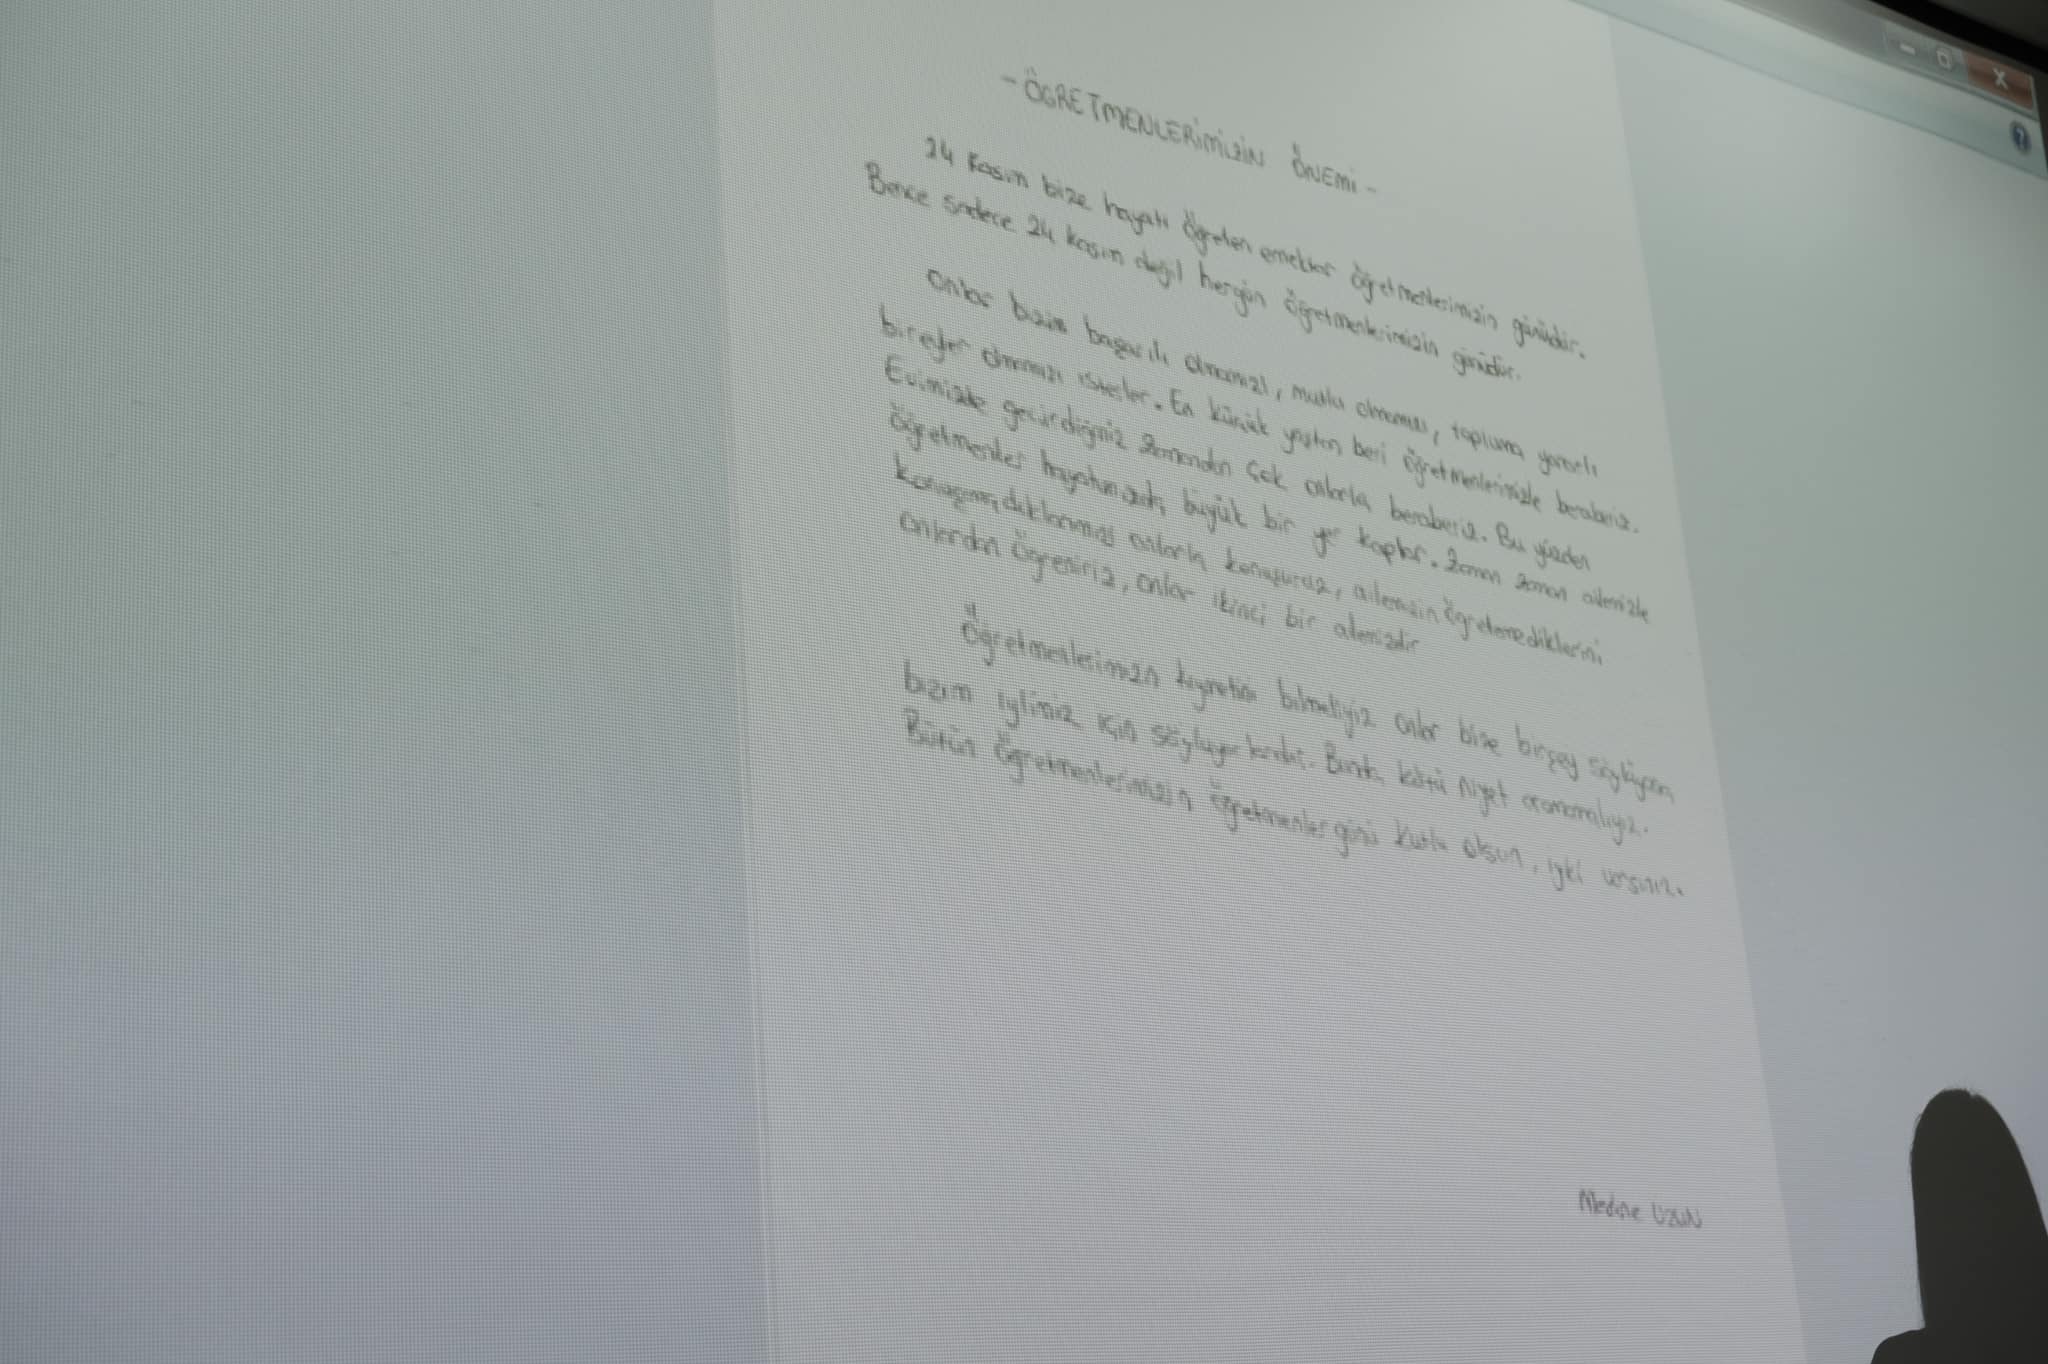 - ÖĞRETMENLERİMİZİN ÖNEMİ -
24 Kasım bize hayatı öğreten emektar öğretmenlerimizin günüdür.
Bence sadece 24 kasım değil hergün öğretmenlerimizin günüdür.
Onlar bizim başarılı olmamızı, mutlu olmamızı, topluma yararlı
bireyler olmamızı isterler. En küçük yaştan beri öğretmenlerimizle beraberiz.
Evimizde geçirdiğimiz zamandan çok onlarla beraberiz. Bu yüzden
öğretmenler hayatımızda büyük bir yer kaplar. Zaman zaman ailemizle
konuşamadıklarımızı onlarla konuşuruz, ailemizin öğretemediklerini
onlardan öğreniriz, onlar ikinci bir ailemizdir
Öğretmenlerimizin kıymetini bilmeliyiz onlar bize birşey söylüyorsa
bizim iyiliğimiz için söylüyorlardır. Bunda kötü niyet aramamalıyız.
Bütün öğretmenlerimizin öğretmenler günü kutlu olsun, iyki varsınız.
Medine UZUN